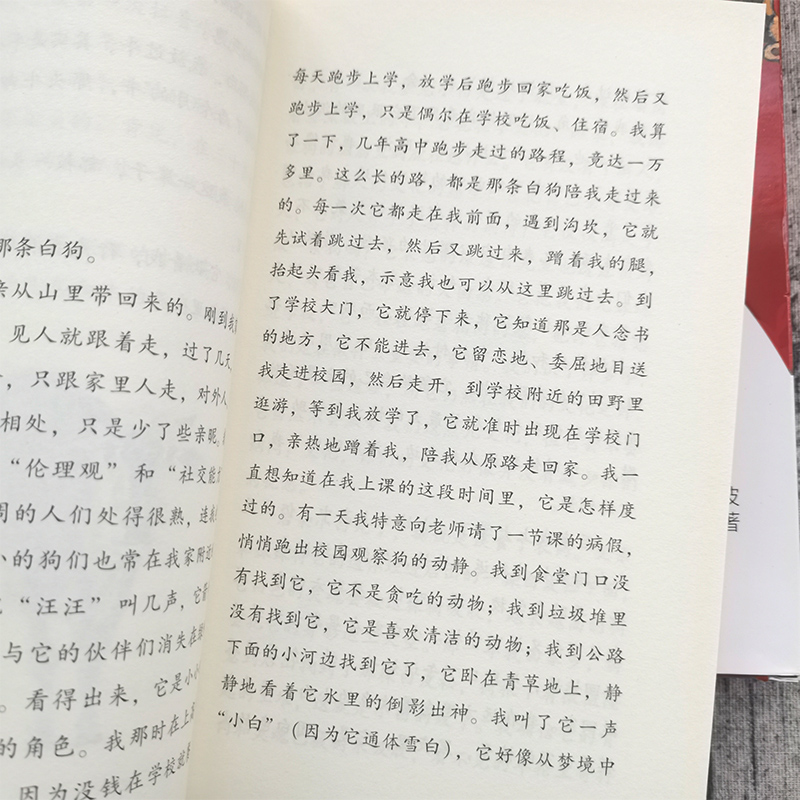 那条白狗。
亲从山里带回来的。刚到我
见人就跟着走，过了几天
，只跟家里人走，对外人
相处，只是少了些亲昵。
“伦理观”和“社交能
周的人们处得很熟，连
小的狗们也常在我家附近
“汪汪”叫几声，它
与它的伙伴们消失在
。看得出来，它是小
的角色。我那时在上
因为没钱在学校就
每天跑步上学，放学后跑步回家吃饭，然后又
跑步上学，只是偶尔在学校吃饭、住宿。我算
了一下，几年高中跑步走过的路程，竟达一万
多里。这么长的路，都是那条白狗陪我走过来
的。每一次它都走在我前面，遇到沟坎，它就
先试着跳过去，然后又跳过来，蹭着我的腿，
抬起头看我，示意我也可以从这里跳过去。到
了学校大门，它就停下来，它知道那是人念书
的地方，它不能进去，它留恋地、委屈地目送
我走进校园，然后走开，到学校附近的田野里
逛游，等到我放学了，它就准时出现在学校门
口，亲热地蹭着我，陪我从原路走回家。我一
直想知道在我上课的这段时间里，它是怎样度
过的。有一天我特意向老师请了一节课的病假，
悄悄跑出校园观察狗的动静。我到食堂门口没
有找到它，它不是贪吃的动物；我到垃圾堆里
没有找到它，它是喜欢清洁的动物；我到公路
下面的小河边找到它了，它卧在青草地上，静
静地看着它水里的倒影出神。我叫了它一声
“小白”（因为它通体雪白），它好像从梦境中
著